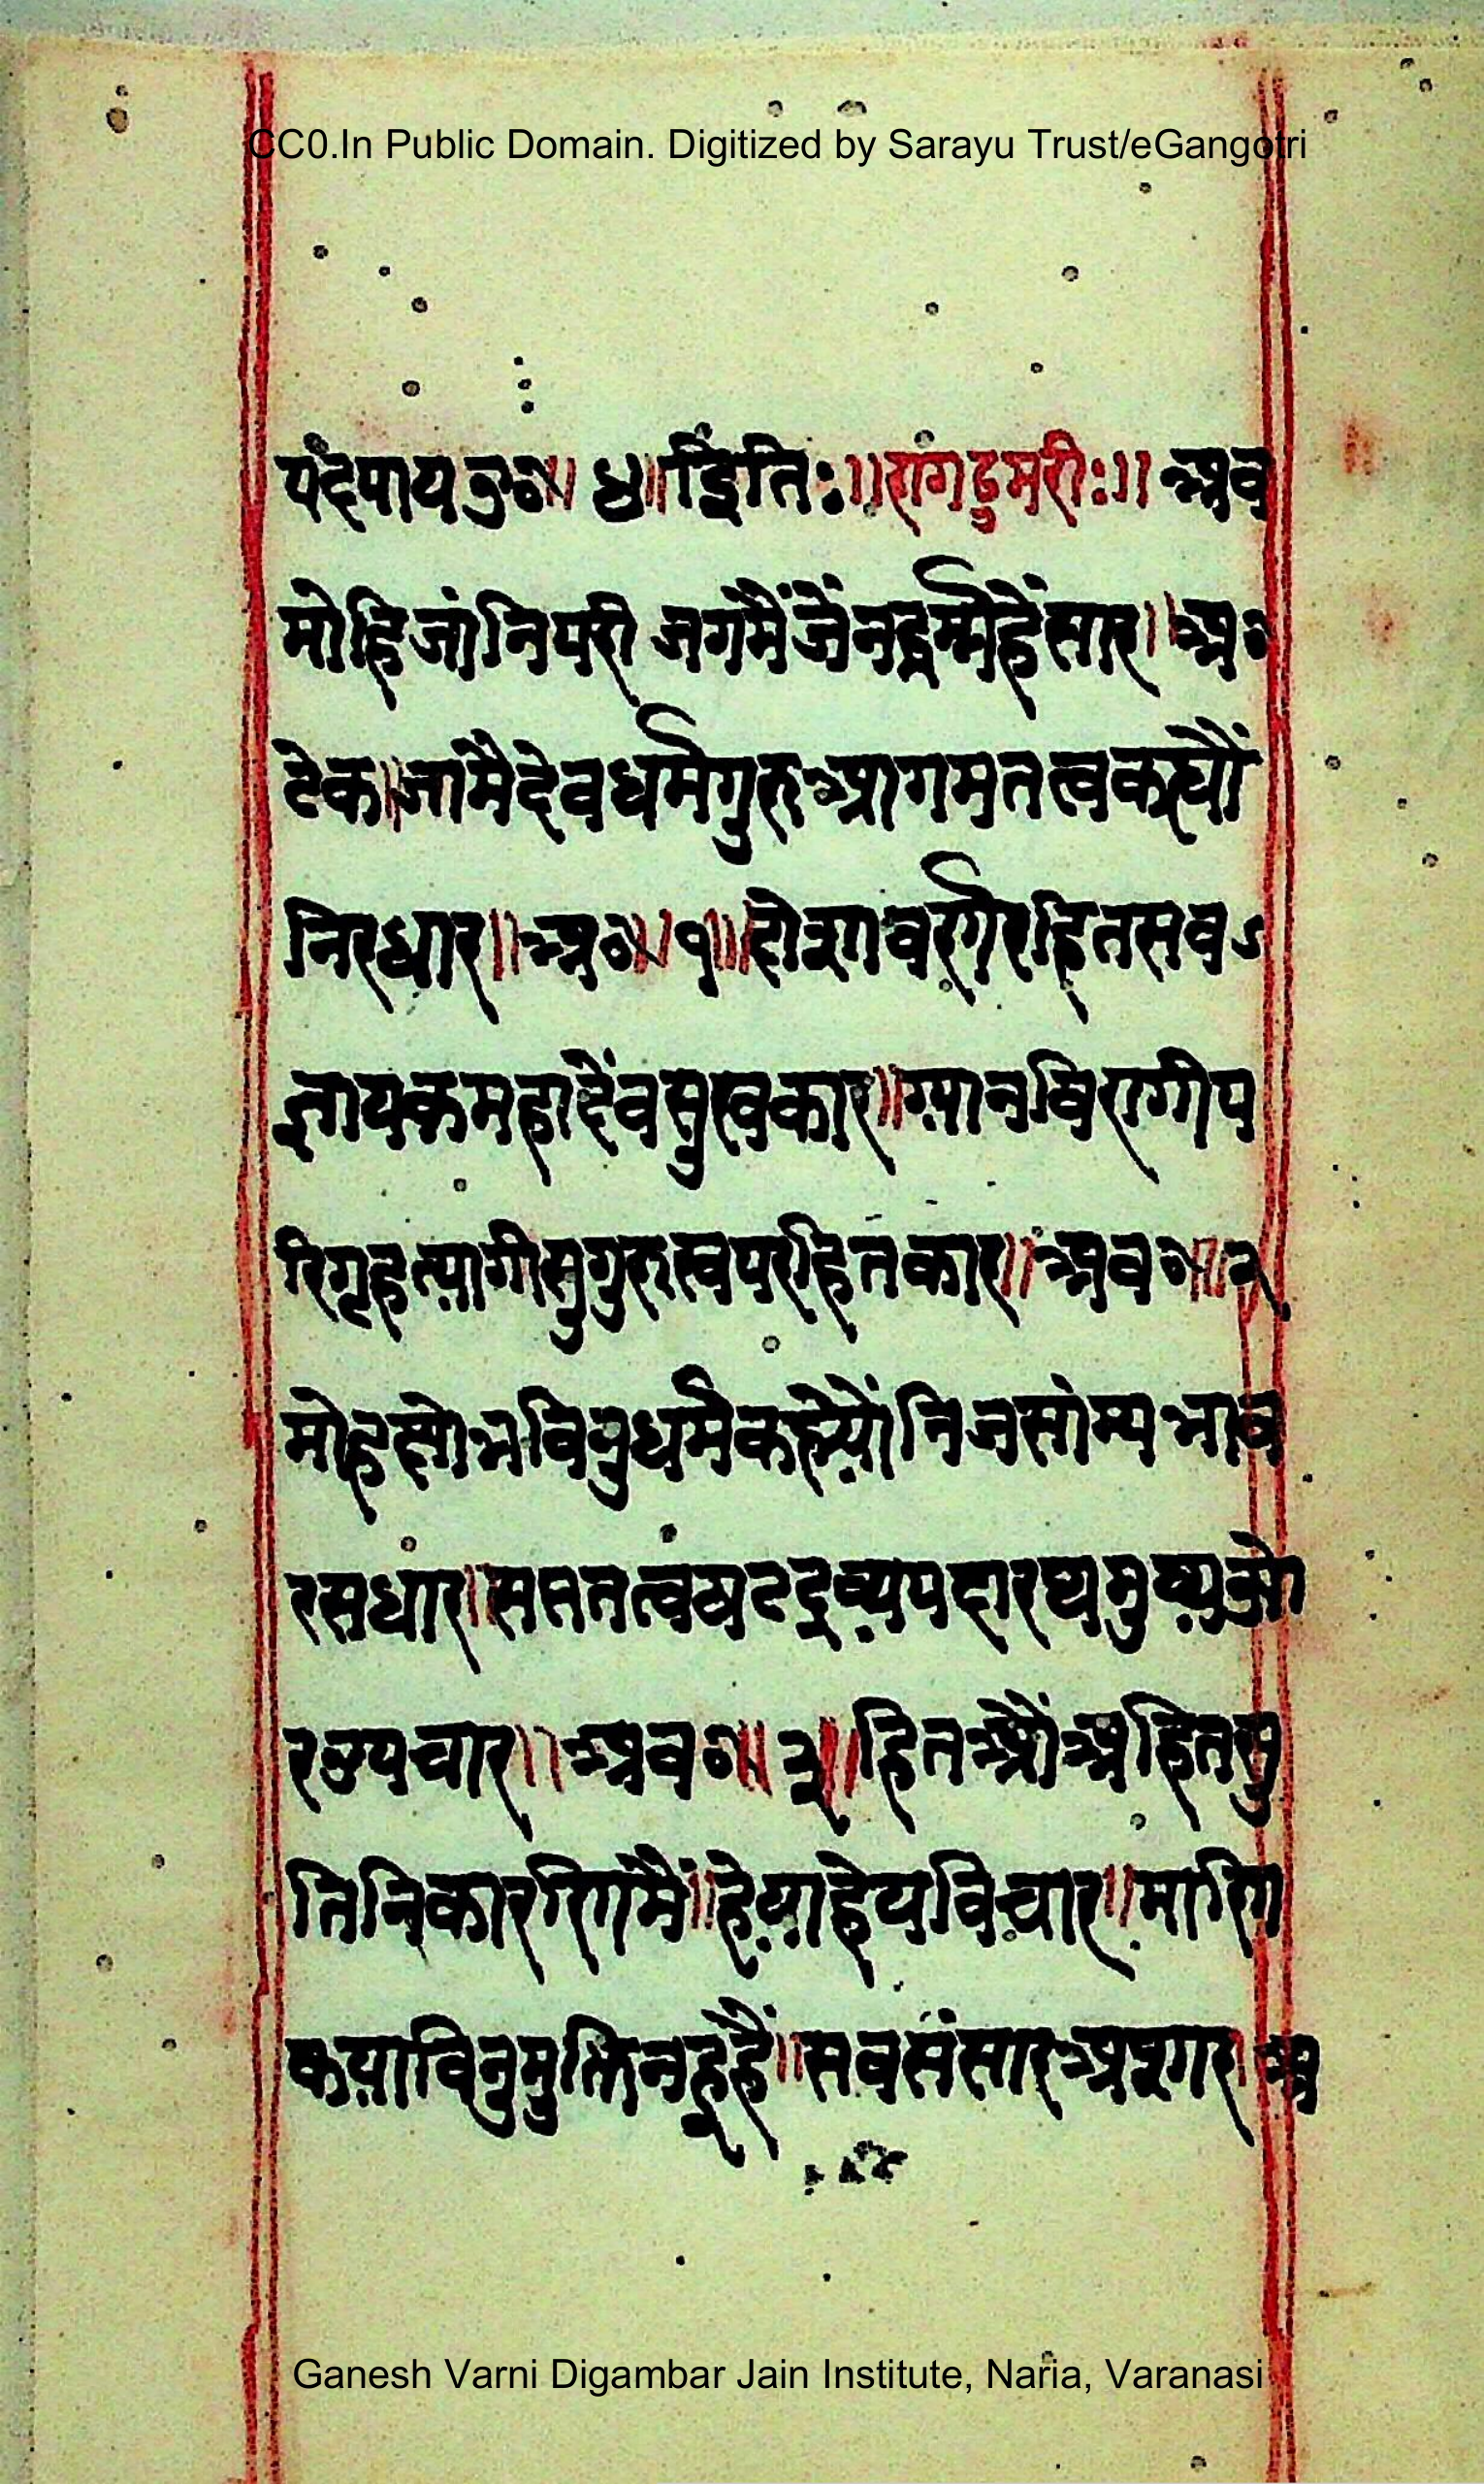 CC0.In Public Domain. Digitized by Sarayu Trust/eGangotri
॥ ४॥ इति: ॥ राग ठुमरीः॥ अब
मोहि जांनि परी जगमैं जैंनधर्म्महैंसार॥ अ॰
टेक॥ जामै देवधर्मगुरुआगमतत्वकह्यौं
निरधार॥ अ॰॥ १॥ सब
ज्ञायकमहादेंवसुखकार॥ ग्यानविरागीप
रिगृहत्यागीसुगुरुस्वपरहितकार॥ अब॰॥ २
मोहक्षोभविनुधर्मकह्योंनिजसांम्यभाव
रसधार॥ सप्ततत्वषटद्रव्यपदारथमुष्यओ
रउपचार॥ अब॰॥ ३॥ हितऔंअहितसु
तिनिकारगिमैं॥ हेयाहेयविचार॥ मारगि
कयाविनुमुक्तिनहूहैं॥ सबसंसारअपार॥ अ
Ganesh Varni Digambar Jain Institute, Naria, Varanasi